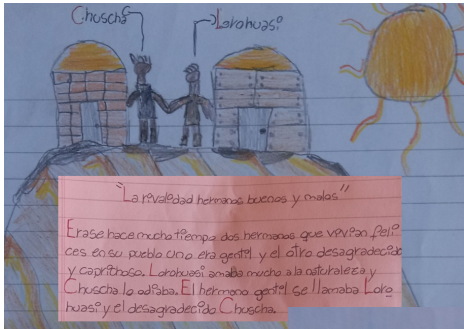 Chuscha Lorohuasi
"La rivaledad hermanos buenos y malos"
Erase hace mucho tiempo dos hermanos que vivian feli
ces en su pueblo uno era gentil y el otro desagradecido
y caprichoso. Lorohuasi amaba mucho a la naturaleza y
Chuscha lo odiaba. El hermano gentil se llamaba Loro
huasi y el desagradecido Chuscha.